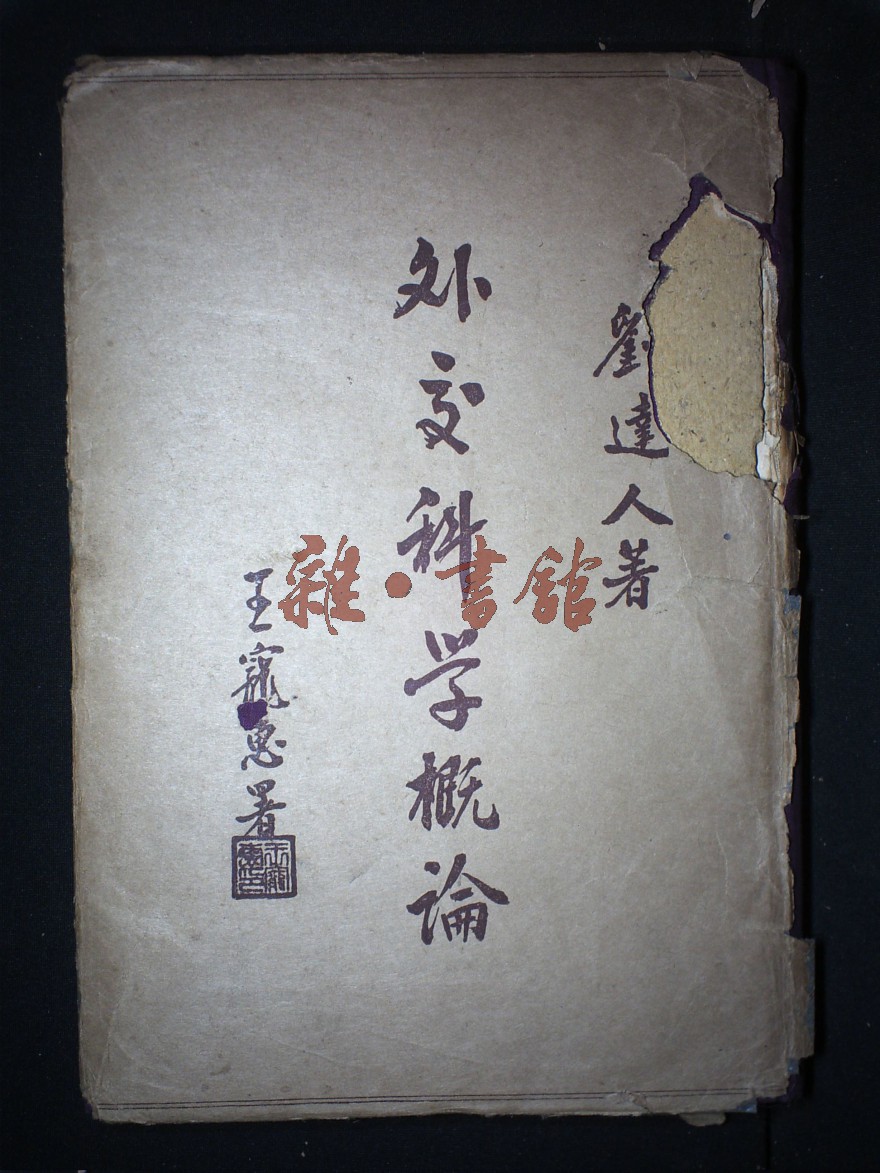 劉達人著
外交科学概論
王寵惠署
雜·書館